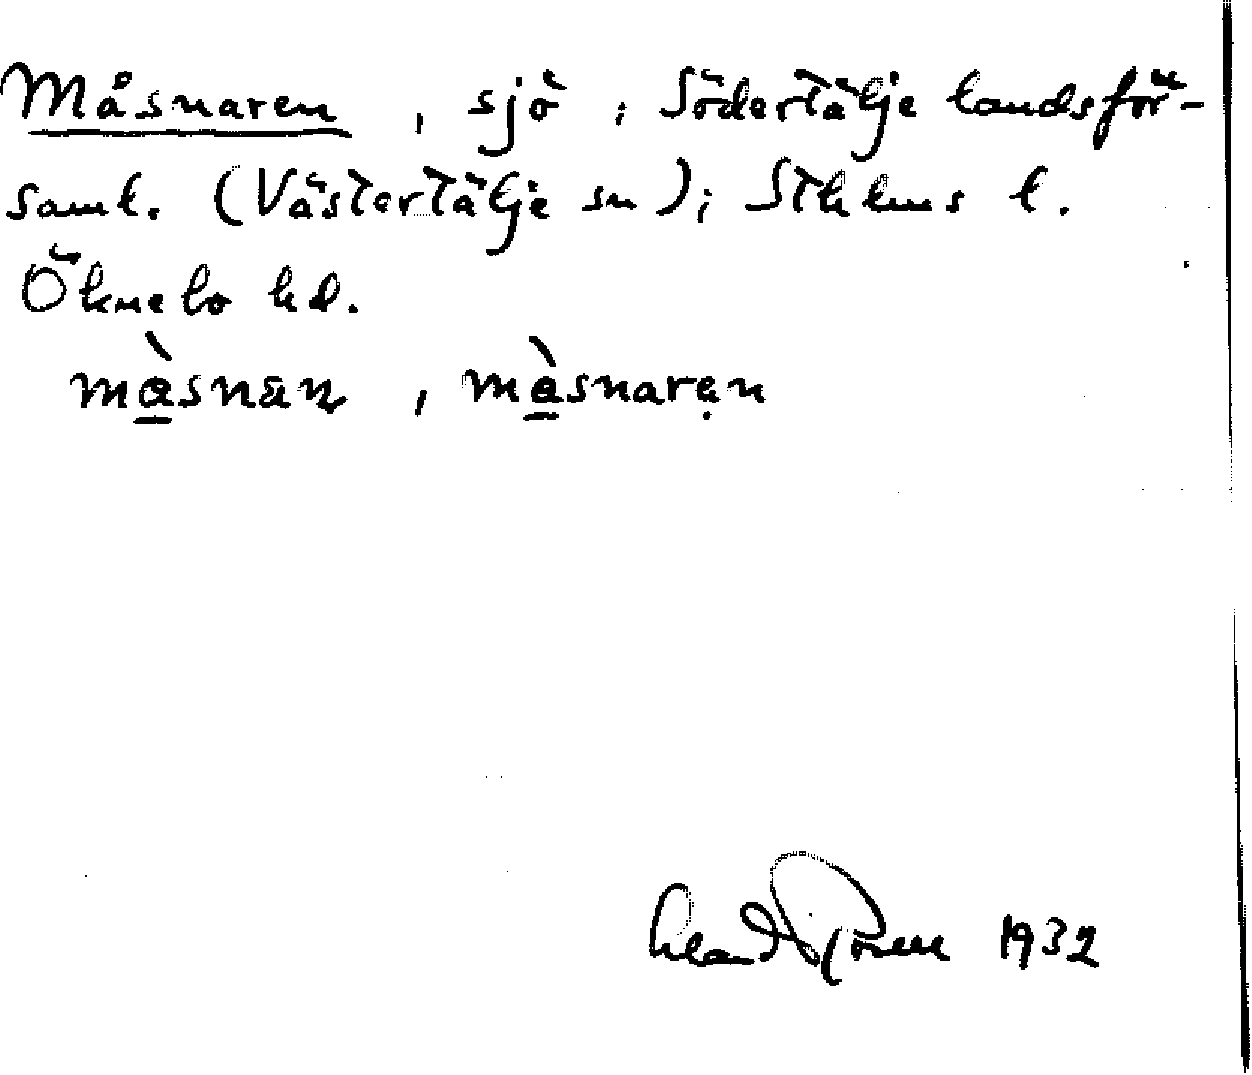 Måsnaren, sjö, Södertälje landsför-
saml. (Västertälje sn); Sthlms l.
Öknebo hd.
må̀snan, må̀snarẹn
1932